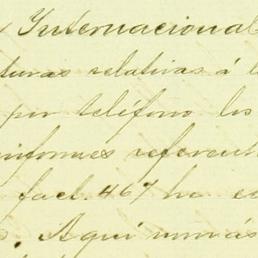 Internacional
turas relativas á l
por teléfono los
informes referent
fact. 467 ha e
Aquí